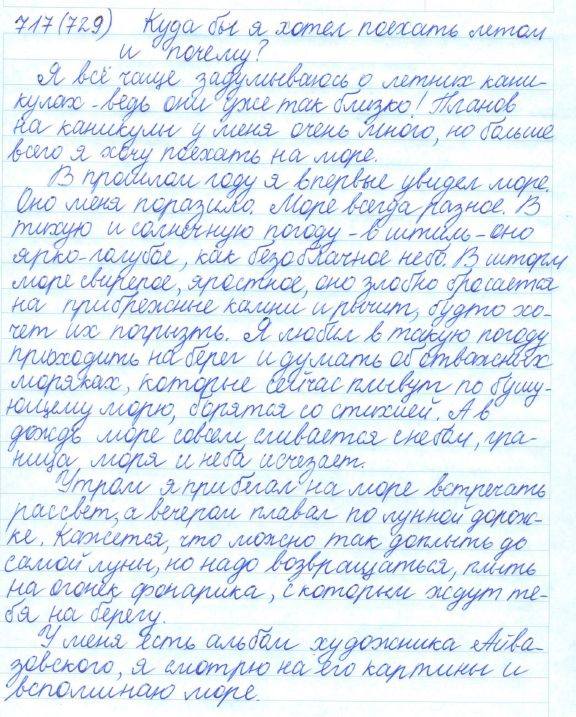 717(729) Куда бы я хотел поехать летом
и почему?
Я всё чаще задумываюсь о летних кани-
кулах - ведь они уже так близко! Планов
на каникулы у меня очень много, но больше
всего я хочу поехать на море.
В прошлом году я впервые увидел море.
Оно меня поразило. Море всегда разное. В
тихую и солнечную погоду - в штиль - оно
ярко-голубое, как безоблачное небо. В шторм
море свирепое, яростное, оно злобно бросается
на прибрежные камни и рычит, будто хо-
чет их погрызть. Я любил в такую погоду
приходить на берег и думать об отважных
моряках, которые сейчас плывут по бушу-
ющему морю, борятся со стихией. А в
дождь море совсем сливается с небом, гра-
ница моря и неба исчезает.
Утром я прибегал на море встречать
рассвет, а вечером плавал по лунной дорож-
ке. Кажется, что можно так доплыть до
самой луны, но надо возвращаться, плыть
на огонёк фонарика, с которым ждут те-
бя на берегу.
У меня есть альбом художника Айва-
зовского, я смотрю на его картины и
вспоминаю море.